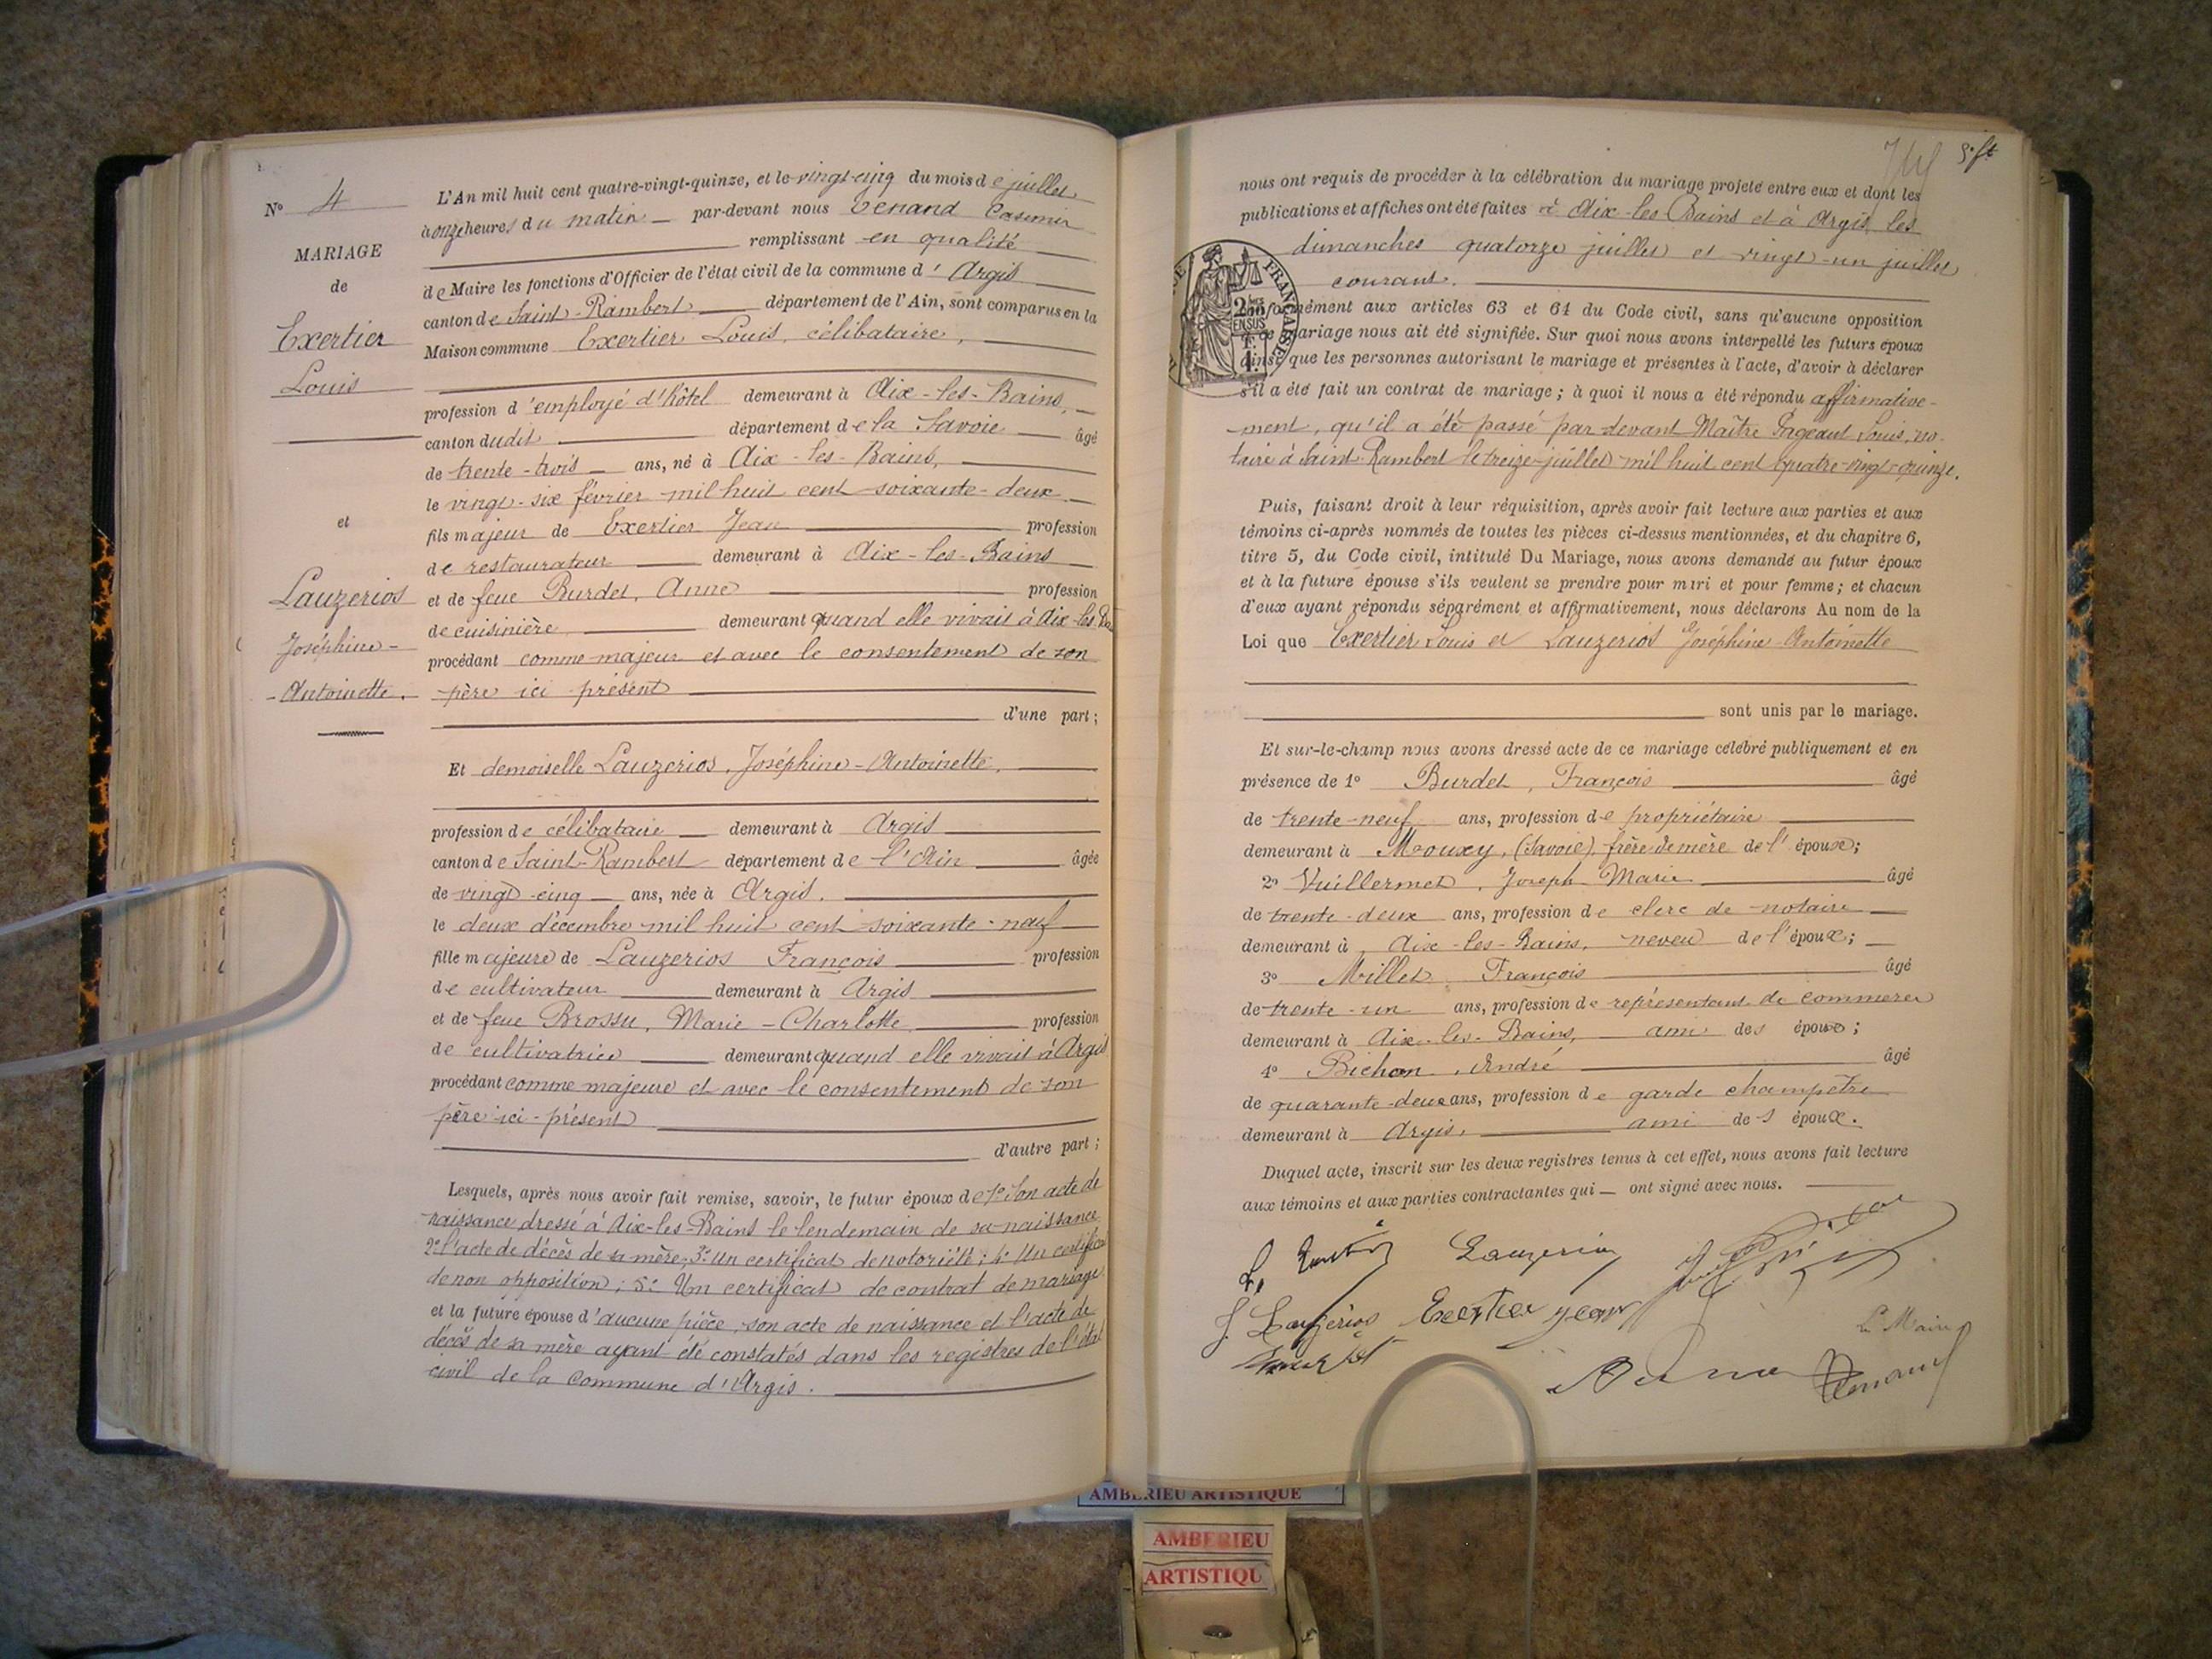 N° 4
MARIAGE
de
Exertier
Louis
et
Lauzerios
Joséphine-
-Antoinette.
L'An mil huit cent quatre-vingt-quinze, et le vingt-cinq du mois de juillet
à onze heures du matin par-devant nous Venand Casimir
remplissant en qualité
de Maire les fonctions d'Officier de l'état civil de la commune d'Argis
canton de Saint-Rambert département de l'Ain, sont comparus en la
Maison commune Exertier Louis, célibataire,
profession d'employé d'hôtel demeurant à Aix-les-Bains,
canton dudit département de la Savoie âgé
de trente-trois ans, né à Aix-les-Bains,
le vingt-six février mil huit cent soixante-deux
fils majeur de Exertier Jean profession
de restaurateur demeurant à Aix-les-Bains
et de feue Burdet, Anne profession
de cuisinière demeurant quand elle vivait à Aix-les-Ba
procédant comme majeur et avec le consentement de son
père ici présent
d'une part;
Et demoiselle Lauzerios, Joséphine-Antoinette,
profession de célibataire demeurant à Argis
canton de Saint-Rambert département de l'Ain âgée
de vingt-cinq ans, née à Argis.
le deux décembre mil huit cent soixante-neuf
fille majeure de Lauzerios François profession
de cultivateur demeurant à Argis
et de feue Brossu, Marie-Charlotte profession
de cultivatrice demeurant quand elle vivait à Argis
procédant comme majeure et avec le consentement de son
père ici-présent
d'autre part;
Lesquels, après nous avoir fait remise, savoir, le futur époux de 1° Son acte de
naissance dressé à Aix-les-Bains le lendemain de sa naissance
2° l'acte de décès de sa mère; 3° Un certificat de notoriété; 4° Un certificat
de non opposition; 5° Un certificat de contrat de mariage
et la future épouse d'aucune pièce, son acte de naissance et l'acte de
décès de sa mère ayant été constatés dans les registres de l'état
civil de la commune d'Argis.
nous ont requis de procéder à la célébration du mariage projeté entre eux et dont les
publications et affiches ont été faites à Aix-les-Bains et à Argis, les
dimanches quatorze juillet et vingt-un juillet
courant.
Conformément aux articles 63 et 64 du Code civil, sans qu'aucune opposition
ce mariage nous ait été signifiée. Sur quoi nous avons interpellé les futurs époux
ainsi que les personnes autorisant le mariage et présentes à l'acte, d'avoir à déclarer
s'il a été fait un contrat de mariage; à quoi il nous a été répondu affirmative-
-ment, qu'il a été passé par-devant Maître Pageaut Louis, no-
taire à Saint-Rambert le treize juillet mil huit cent quatre-vingt-quinze.
Puis, faisant droit à leur réquisition, après avoir fait lecture aux parties et aux
témoins ci-après nommés de toutes les pièces ci-dessus mentionnées, et du chapitre 6,
titre 5, du Code civil, intitulé Du Mariage, nous avons demandé au futur époux
et à la future épouse s'ils veulent se prendre pour mari et pour femme; et chacun
d'eux ayant répondu séparément et affirmativement, nous déclarons Au nom de la
Loi que Exertier Louis et Lauzerios Joséphine-Antoinette
sont unis par le mariage.
Et sur-le-champ nous avons dressé acte de ce mariage célébré publiquement et en
présence de 1° Burdet, François âgé
de trente-neuf ans, profession de propriétaire
demeurant à Mouxy, (Savoie) frère de mère de l'époux;
2° Vuillermet, Joseph Marie âgé
de trente-deux ans, profession de clerc de notaire
demeurant à Aix-les-Bains, neveu de l'époux;
3° Millet, François âgé
de trente-un ans, profession de représentant de commerce
demeurant à Aix-les-Bains, ami des époux;
4° Bichon, André âgé
de quarante-deux ans, profession de garde champêtre
demeurant à Argis, ami des époux.
Duquel acte, inscrit sur les deux registres tenus à cet effet, nous avons fait lecture
aux témoins et aux parties contractantes qui ont signé avec nous.
Lauzerios
J. Lauzerios Exertier Jean
Le Maire
Venand
AMBERIEU ARTISTIQUE
AMBERIEU
ARTISTIQU